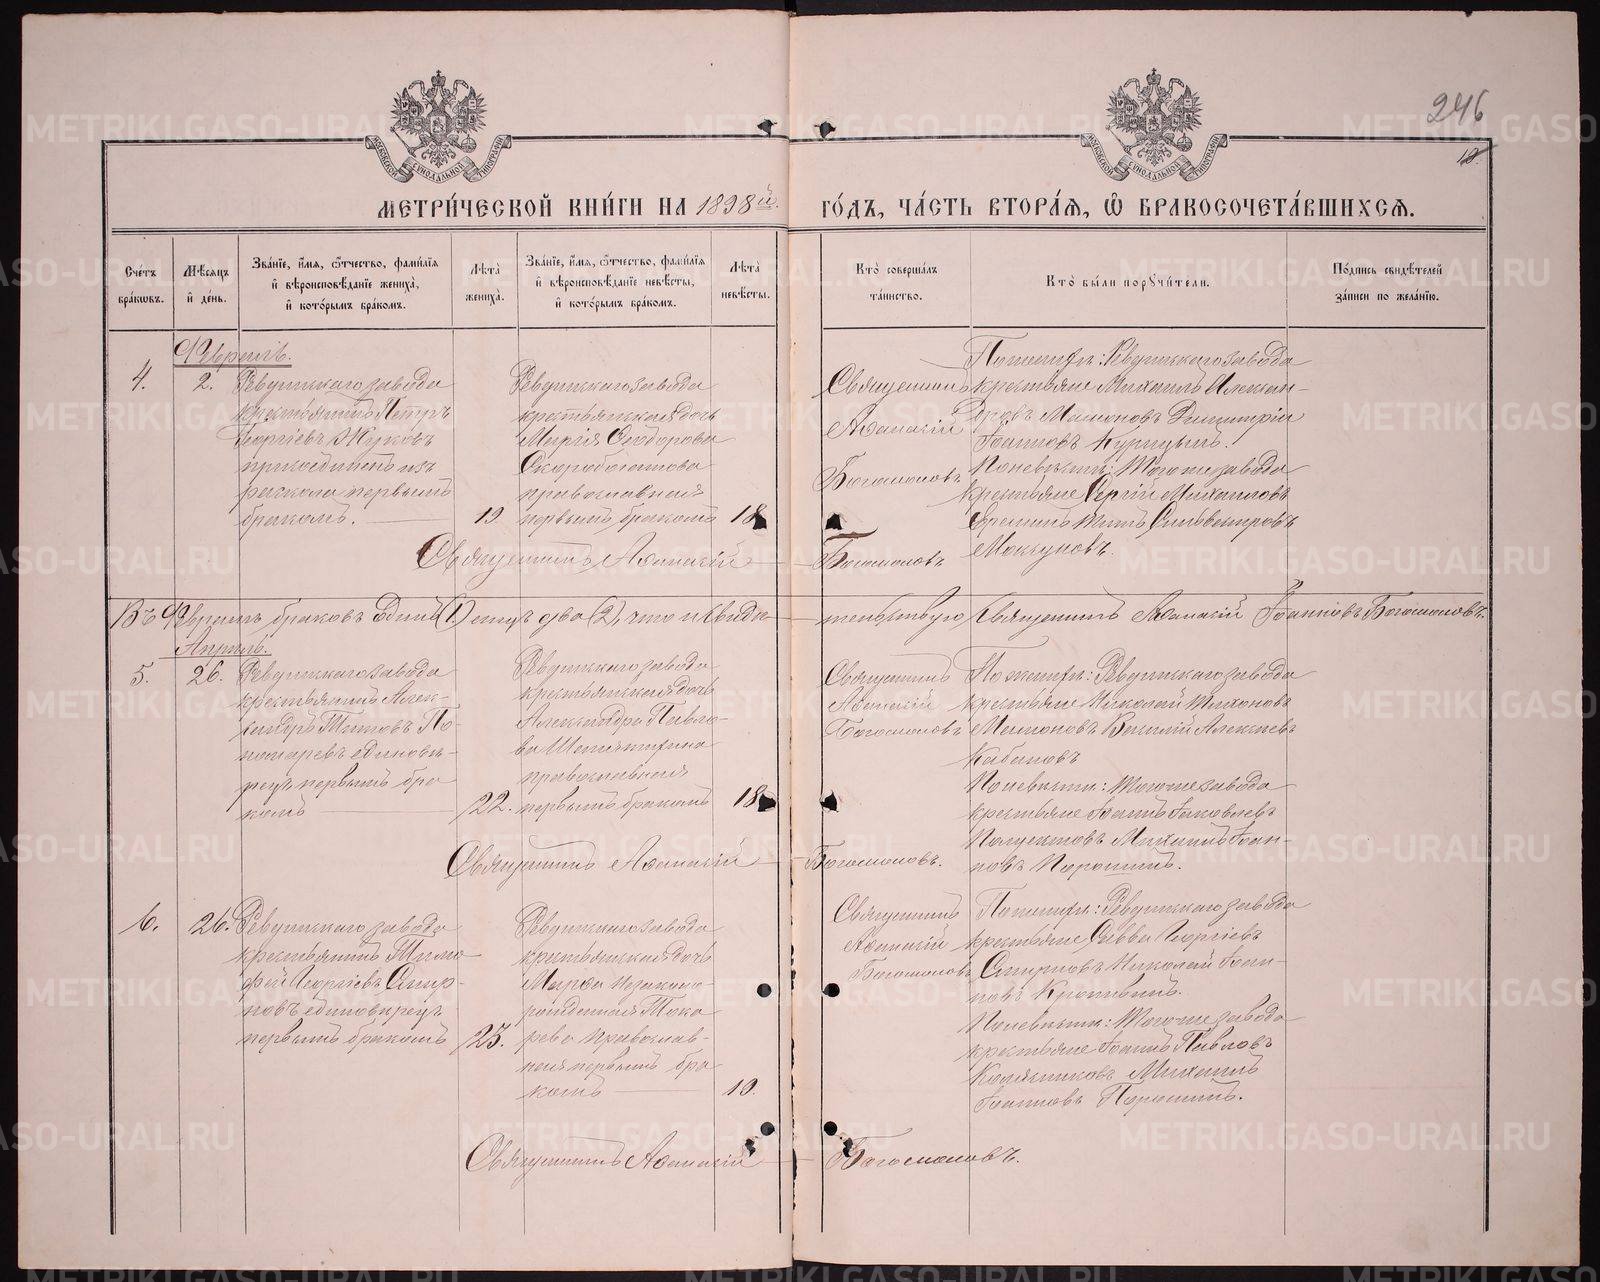 246
12
МЕТРИ́ЧЕСКОЙ КНИ́ГИ НА 1898й. ГО́ДЪ, ЧА́СТЬ ВТОРА́Я, Ѡ БРАКОСОЧЕТА́ВШИХСЯ.
Сче́тъ бра́ковъ.
Мѣ́сяцъ и҆ де́нь.
Зва́нїе, и҆́мя, ѻ҆́тчество, фами́лїя и҆ вѣроисповѣ́данїе жениха̀, и҆ кото́рымъ бра́комъ.
Лѣ́та жениха̀.
Зва́нїе, и҆́мя, ѻ҆́тчество, фами́лїя и҆ вѣроисповѣ́данїе невѣ́сты, и҆ кото́рымъ бра́комъ.
Лѣ́та невѣ́сты.
Кто̀ соверша́лъ та́инство.
Кто̀ бы́ли порꙋчи́тели.
По́дпись свидѣ́телей за́писи по жела́нїю.
Февраль.
4.
2.
Ревдинскаго завода
крестьянинъ Петръ
Георгіевъ Жуковъ
присоединенъ изъ
раскола первымъ
бракомъ.
19
Ревдинскаго завода
крестьянская дочь
Марія Ѳеодорова
Скоробогатова
православная
первымъ бракомъ
18
Священникъ
Аѳанасій
Богомоловъ
По женихѣ: Ревдинскаго завода
крестьяне Михаилъ Алексан-
дровъ Мамоновъ Димитрій
Іоанновъ Курицынъ.
По невѣстѣ: Тогоже завода
крестьяне Сергій Михаиловъ
Ереминъ Силвестровъ
Священникъ Аѳанасій Богомоловъ
Въ Февралѣ браковъ Единъ (1) лицъ два (2), что и свидѣтельствую Священникъ Аѳанасій Іоанновъ Богомоловъ.
Апрѣль.
5.
26.
Ревдинскаго завода
крестьянинъ Алек-
сандръ Титовъ По-
номаревъ единовѣ-
рецъ первымъ бра
комъ
22.
Ревдинскаго завода
крестьянская дочь
Александра Павло-
ва
православная
первымъ бракомъ
18
Священникъ
Аѳанасій
Богомоловъ
По женихѣ: Ревдинскаго завода
крестьяне Николай Тихоновъ
Мамоновъ Василій Алексѣевъ
Кабановъ
По невѣстѣ: Тогоже завода
крестьяне Іоаннъ Іаковлевъ
Полуектовъ Михаилъ Іоан-
новъ Порошинъ.
Священникъ Аѳанасій Богомоловъ.
6.
26.
Ревдинскаго завода
крестьянинъ Тимо
фей Георгіевъ Смир-
новъ единовѣрецъ
первымъ бракомъ
23.
Ревдинскаго завода
крестьянская дочь
Марѳа незаконо-
рожденная Тока
рева православ-
ная первымъ бра
комъ
19.
Священникъ
Аѳанасій
Богомоловъ
По женихѣ: Ревдинскаго завода
крестьяне Савва Георгіевъ
Смирновъ Николай Іоан-
новъ
По невѣстѣ: Тогоже завода
крестьяне Іоаннъ Павловъ
Михаилъ
Іоанновъ Порошинъ.
Священникъ Аѳанасій Богомоловъ.
METRIKI.GASO-URAL.RU